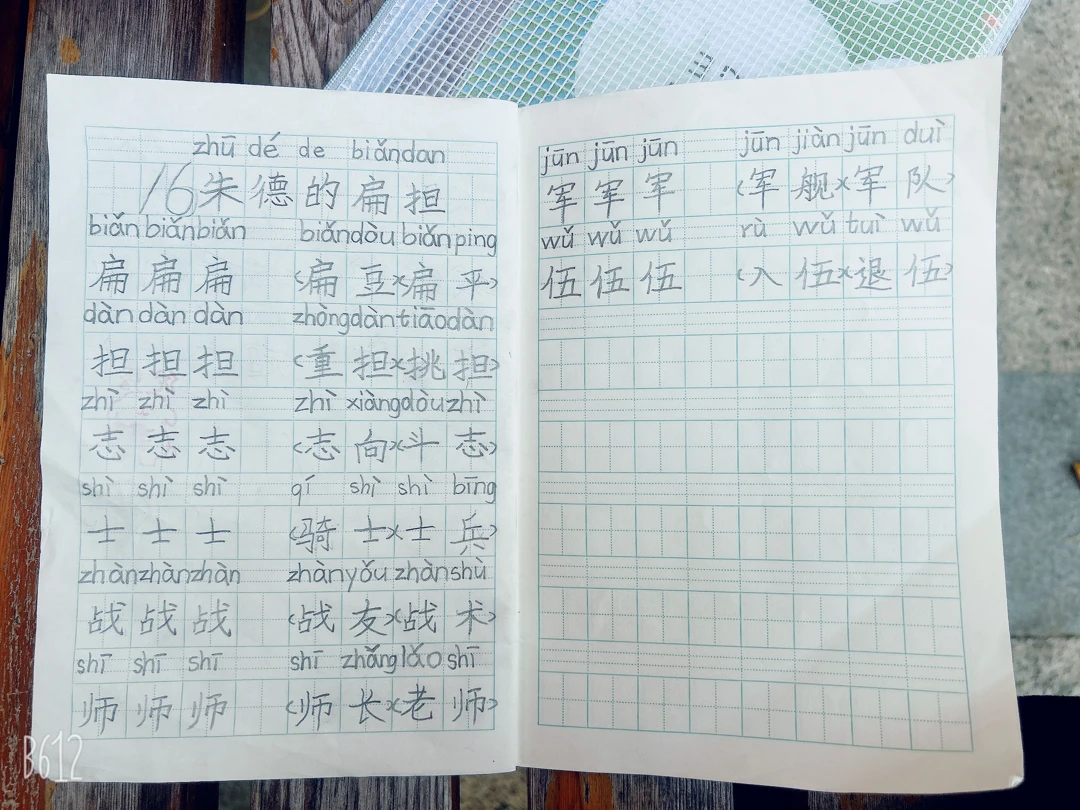 zhū dé de biǎndan
16朱德的扁担
biǎn biǎn biǎn biǎndòu biǎn ping
扁扁扁(扁豆)(扁平)
dàn dàn dàn zhòngdàn tiāodàn
担担担(重担)(挑担)
zhì zhì zhì zhì xiàng dòu zhì
志志志(志向)(斗志)
shì shì shì qí shì shì bīng
士士士(骑士)(士兵)
zhàn zhàn zhàn zhànyǒu zhànshù
战战战(战友)(战术)
shī shī shī shī zhǎng lǎo shī
师师师(师长)(老师)
B612
jūn jūn jūn jūn jiàn jūn duì
军军军(军舰)(军队)
wǔ wǔ wǔ rù wǔ tuì wǔ
伍伍伍(入伍)(退伍)